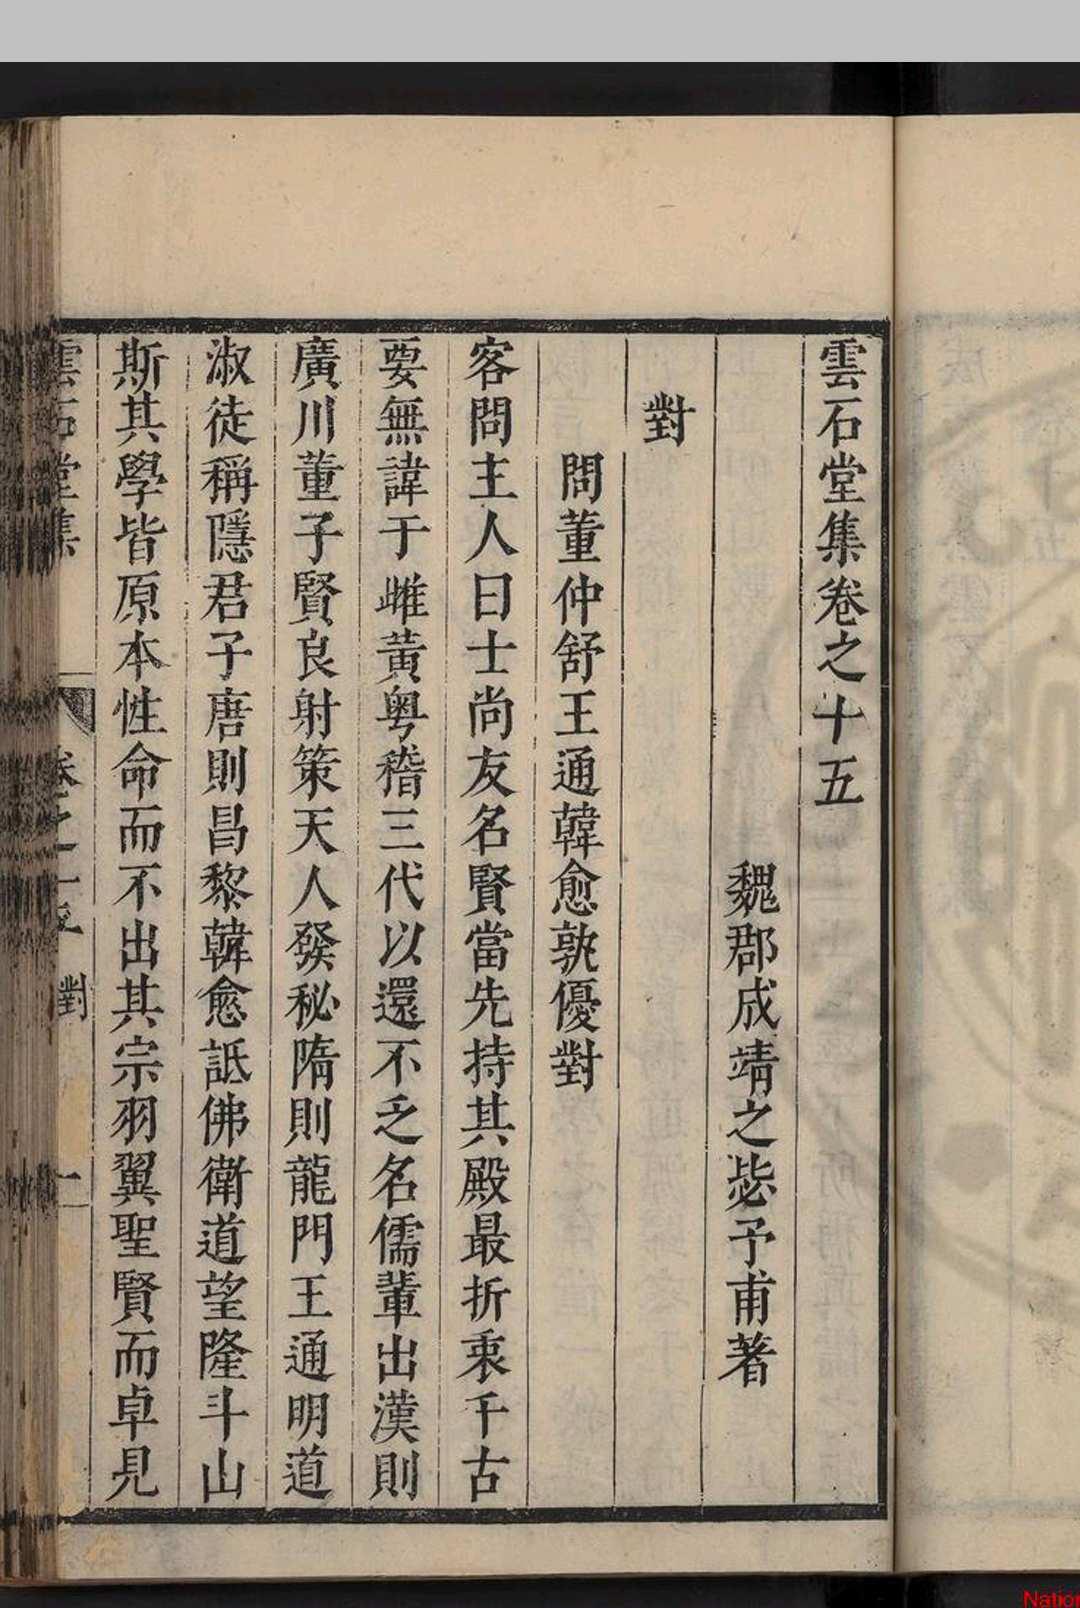 雲石堂集卷之十五
魏郡成靖之毖予甫著
對
問董仲舒王通韓愈孰優對
客問主人曰士尚友名賢當先持其殿最折衷千古
要無諱于雌黃粵稽三代以還不乏名儒輩出漢則
廣川董子賢良射策天人發秘隋則龍門王通明道
淑徒稱隱君子唐則昌黎韓愈詆佛衛道望隆斗山
斯其學皆原本性命而不出其宗羽翼聖賢而卓見
雲石堂集 卷之十五 對 一
Nation